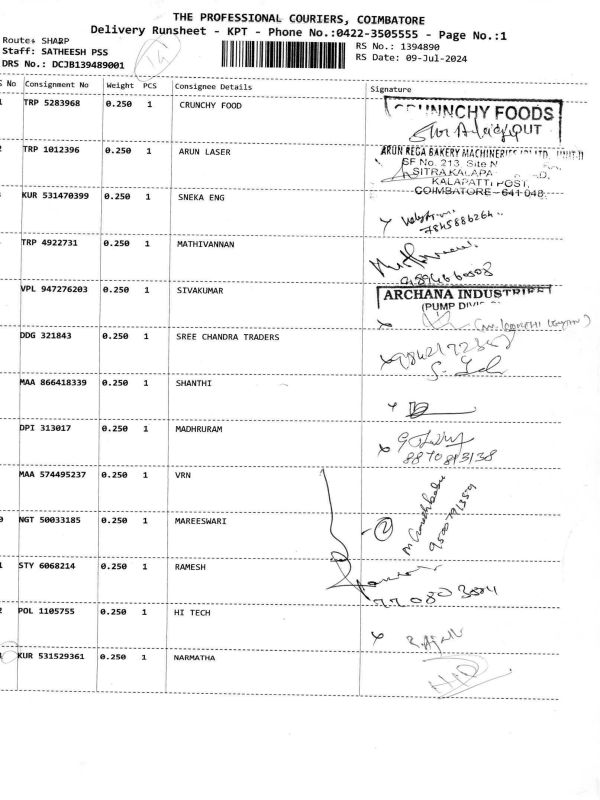 THE PROFESSIONAL COURIERS, COIMBATORE
Delivery Runsheet - KPT - Phone No.:0422-3505555 - Page No.:1
Route: SHARP
Staff: SATHEESH PSS
DRS No.: DCJB139489001
14
RS No.: 1394890
RS Date: 09-Jul-2024
S No Consignment No Weight PCS Consignee Details Signature
TRP 5283968 0.250 1 CRUNCHY FOOD
NNCHY FOODS
OUT
TRP 1012396 0.250 1 ARUN LASER
ARUN REGA BAKERY MACHINERIES
SF No. 213 Site N
SITRA KALAPA
KALAPATTI POST,
COIMBATORE - 641 048.
KUR 531470399 0.250 1 SNEKA ENG
7845886264
TRP 4922731 0.250 1 MATHIVANNAN
VPL 947276203 0.250 1 SIVAKUMAR
ARCHANA INDUSTRIES
(PUMP
DDG 321843 0.250 1 SREE CHANDRA TRADERS
MAA 866418339 0.250 1 SHANTHI
DPI 313017 0.250 1 MADHRURAM
8870813138
MAA 574495237 0.250 1 VRN
2
9500791359
NGT 50033185 0.250 1 MAREESWARI
STY 6068214 0.250 1 RAMESH
POL 1105755 0.250 1 HI TECH
KUR 531529361 0.250 1 NARMATHA